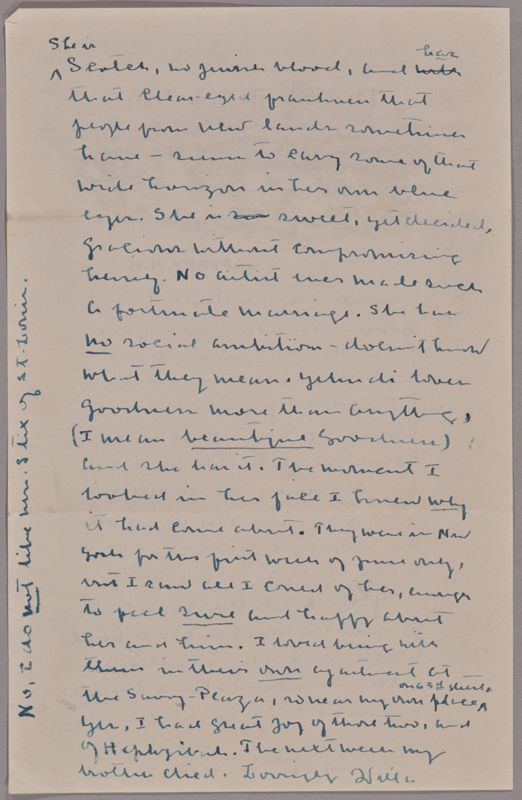 She is
Scotch, no Jewish blood, and with have
that clear-eyed frankness that
people from new lands sometimes
have - seem to carry some of that
wide horizon in her own blue
eyes. She is so sweet, yet decided,
gracious without compromising
herself. No artist ever made such
a fortunate marriage. She has
no social ambitions - doesn't know
what they mean. Yehudi loves
goodness more than anything,
(I mean beautiful goodness)
and she has it. The moment I
looked in her face I knew why
it had come about. They were in New
York for the first week of June only,
but I saw all I could of her, enough
to feel sure and happy about
her and him. I loved being with
them in their own apartment at
the Savoy-Plaza, so near my own place
on 63d street
Yes, I had great joy of those two, and
of Hephzibah. The next week my
brother died. Lovingly Willa
No, I do not like Mrs. Stix of St. Louis.